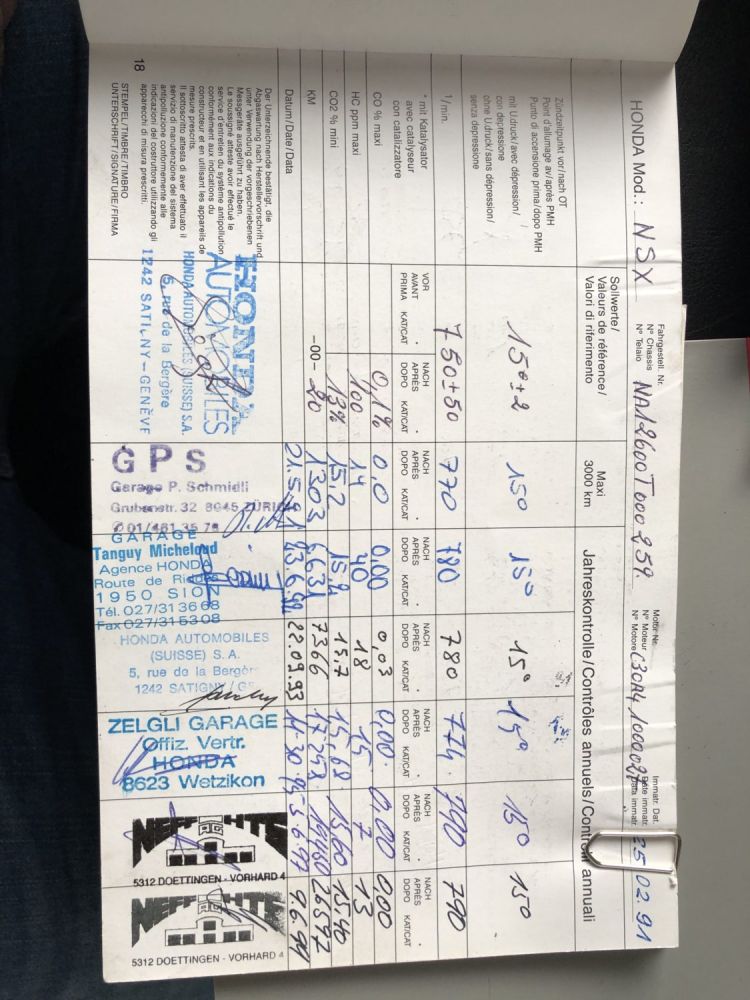 HONDA Mod.: NSX
Fahrgestell. Nr.
N° Chassis
N° Telaio
NA12600T000259
Motor Nr.
N° Moteur
N° Motore
C30A4 1000027
Immatr. Dat.
25.02.91
Zündzeitpunkt vor/nach OT
Point d'allumage av/après PMH
Punto di accensione prima/dopo PMH
Sollwerte/
Valeurs de référence/
Valori di riferimento
Maxi
3000 km
Jahreskontrolle/Contrôles annuels/Controlli annuali
mit U.druck/avec dépression/
con depressione
ohne U.druck/sans dépression/
senza depressione
15°±2
15°
15°
15°
15°
15°
15°
1/min.
780±50
770
780
780
774
790
790
* mit Katalysator
avec catalyseur
con catalizzatore
VOR
AVANT
PRIMA KAT/CAT
NACH
APRÈS
DOPO KAT/CAT
NACH
APRÈS
DOPO KAT/CAT
NACH
APRÈS
DOPO KAT/CAT
NACH
APRÈS
DOPO KAT/CAT
NACH
APRÈS
DOPO KAT/CAT
NACH
APRÈS
DOPO KAT/CAT
NACH
APRÈS
DOPO KAT/CAT
CO % maxi
0,1%
0,0
0,00
0,03
0,00
0,00
0,00
HC ppm maxi
100
14
40
18
15
7
13
CO2 % mini
13%
15,2
15,7
15,68
15.60
15.40
KM
-00- 20
1303
6631
7366
17253
19460
26597
Datum/Date/Data
22.09.93
5.6.97
9.6.99
Der Unterzeichnende bestätigt, die
Abgaswartung nach Herstellervorschrift und
unter Verwendung der vorgeschriebenen
Messgeräte ausgeführt zu haben.
Le soussigné atteste avoir effectué le
service d'entretien du système antipollution
conformément aux indications du
constructeur et en utilisant les appareils de
mesure prescrits.
Il sottoscritto attesta di aver effettuato il
servizio di manutenzione del sistema
antipolluzione conformemente alle
indicazioni del costruttore utilizzando gli
apparecchi di misura prescritti.
STEMPEL/TIMBRE/TIMBRO
UNTERSCHRIFT/SIGNATURE/FIRMA
HONDA
AUTOMOBILES
HONDA AUTOMOBILES (SUISSE) S.A.
5, rue de la Bergère
1242 SATIGNY – GENÈVE
GPS
Garage P. Schmidli
Grubenstr. 32 8045 ZÜRICH
01/461 35 74
GARAGE
Tanguy Micheloud
Agence HONDA
Route de
1950 SION
Tél. 027/31 36 68
Fax 027/31 53 08
HONDA AUTOMOBILES
(SUISSE) S.A.
5, rue de la Bergère
1242 SATIGNY / GE
ZELGLI GARAGE
Offiz. Vertr.
HONDA
8623 Wetzikon
5312 DOETTINGEN - VORHARD 4
5312 DOETTINGEN - VORHARD 4
18